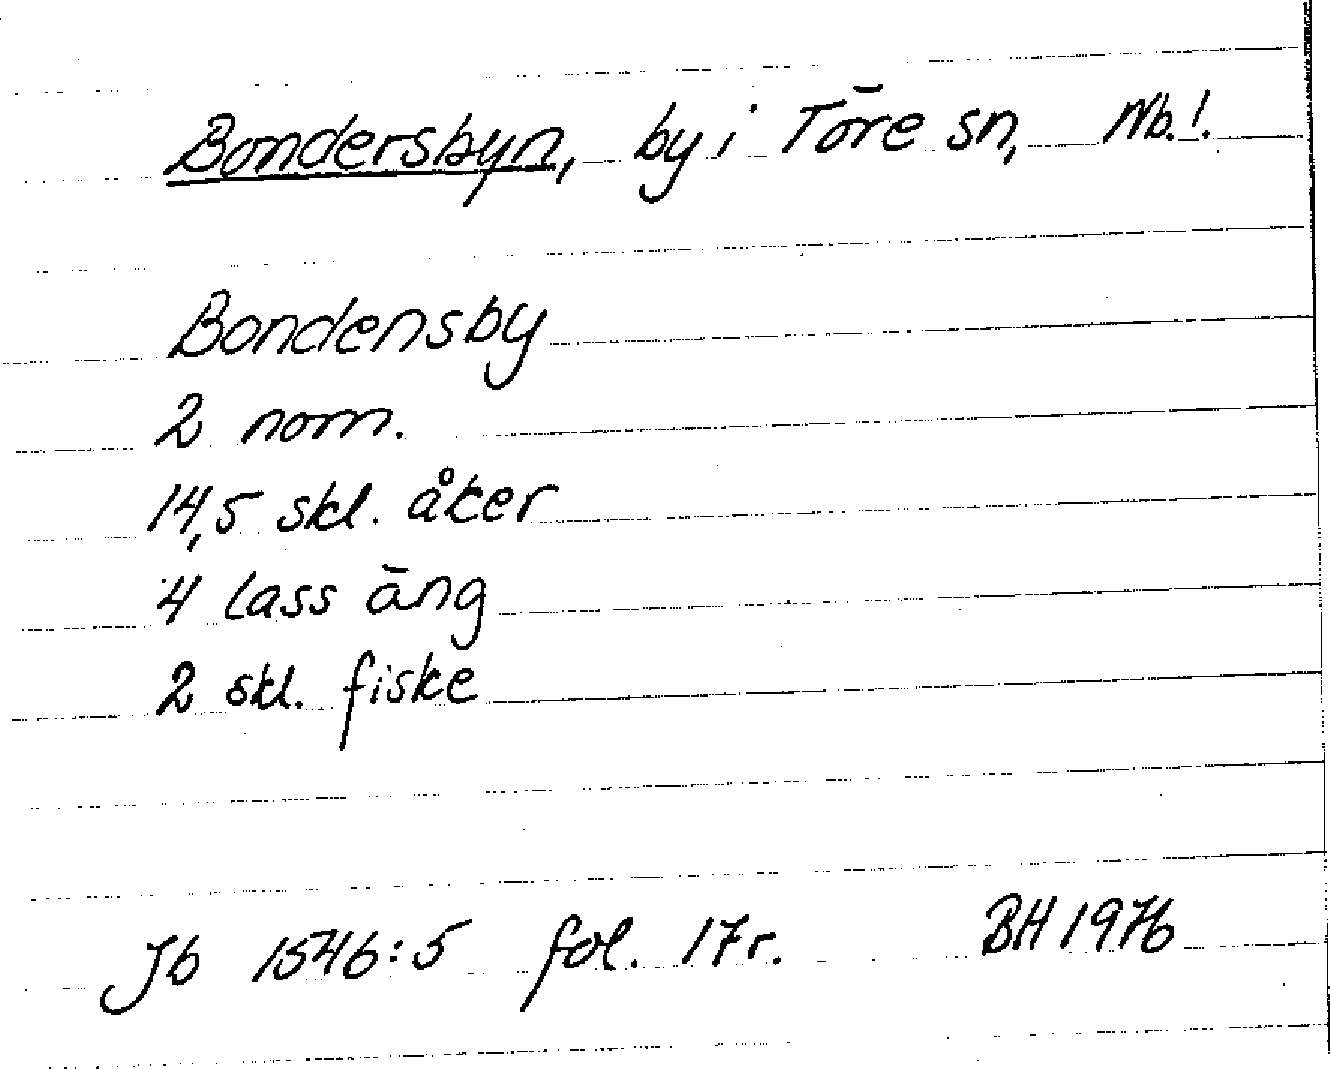 Bondersbyn, by i Töre sn, Nb.l.
Bondensby
2 nom.
14,5 skl. åker
4 lass äng
2 skl. fiske
Jb 1546:5 fol. 17r. BH 1976